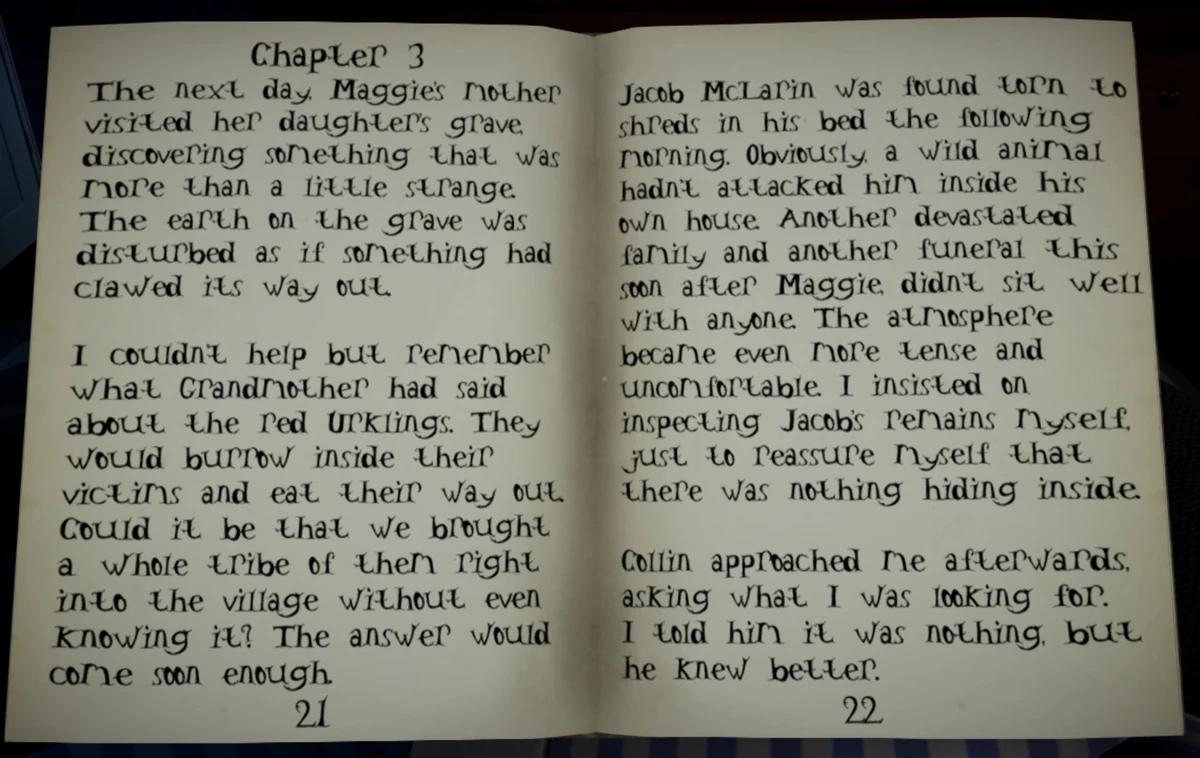 Chapter 3
The next day, Maggie's mother
visited her daughter's grave,
discovering something that was
more than a little strange.
The earth on the grave was
disturbed as if something had
clawed its way out.
I couldn't help but remember
what Grandmother had said
about the red Urklings. They
would burrow inside their
victims and eat their way out.
Could it be that we brought
a whole tribe of them right
into the village without even
knowing it? The answer would
come soon enough.
21
Jacob McLarin was found torn to
shreds in his bed the following
morning. Obviously, a wild animal
hadn't attacked him inside his
own house. Another devastated
family and another funeral this
soon after Maggie, didn't sit well
with anyone. The atmosphere
became even more tense and
uncomfortable. I insisted on
inspecting Jacob's remains myself,
just to reassure myself that
there was nothing hiding inside.
Collin approached me afterwards,
asking what I was looking for.
I told him it was nothing, but
he knew better.
22